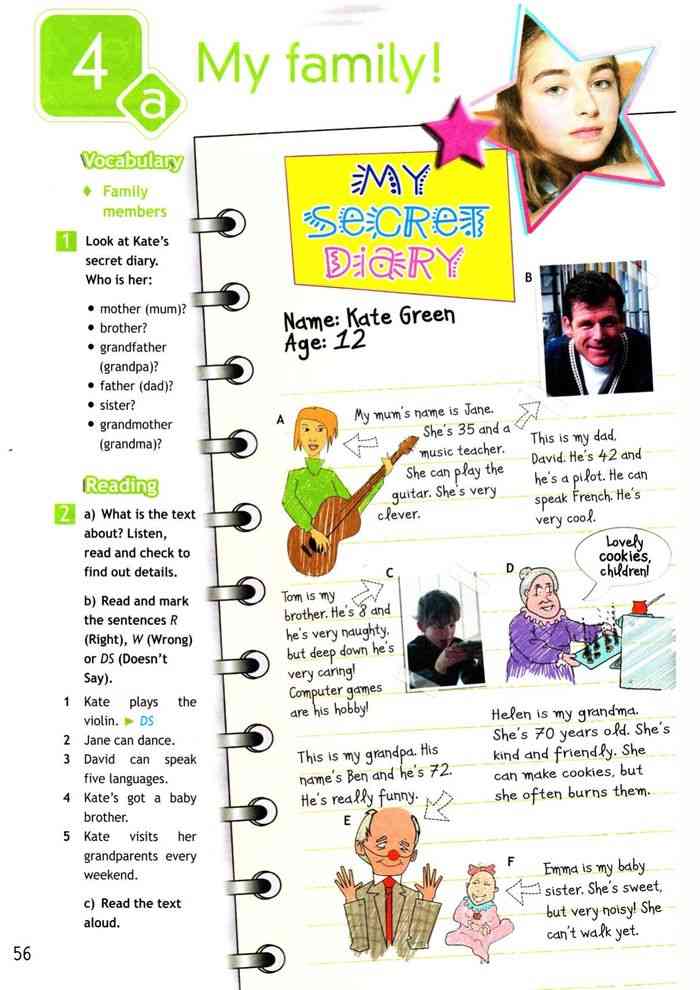 4
a
My family!
Vocabulary
♦ Family
members
1 Look at Kate's
secret diary.
Who is her:
• mother (mum)?
• brother?
• grandfather
(grandpa)?
• father (dad)?
• sister?
• grandmother
(grandma)?
Reading
2 a) What is the text
about? Listen,
read and check to
find out details.
b) Read and mark
the sentences R
(Right), W (Wrong)
or DS (Doesn't
Say).
1 Kate plays the
violin. ► DS
2 Jane can dance.
3 David can speak
five languages.
4 Kate's got a baby
brother.
5 Kate visits her
grandparents every
weekend.
c) Read the text
aloud.
56
MY
SECRET
DIARY
Name: Kate Green
Age: 12
A
My mum's name is Jane.
She's 35 and a
music teacher.
She can play the
guitar. She's very
clever.
B
This is my dad,
David. He's 42 and
he's a pilot. He can
speak French. He's
very cool.
C
Tom is my
brother. He's 8 and
he's very naughty,
but deep down he's
very caring!
Computer games
are his hobby!
D
Lovely
cookies,
children!
Helen is my grandma.
She's 70 years old. She's
kind and friendly. She
can make cookies, but
she often burns them.
This is my grandpa. His
name's Ben and he's 72.
He's really funny.
E
F
Emma is my baby
sister. She's sweet,
but very noisy! She
can't walk yet.